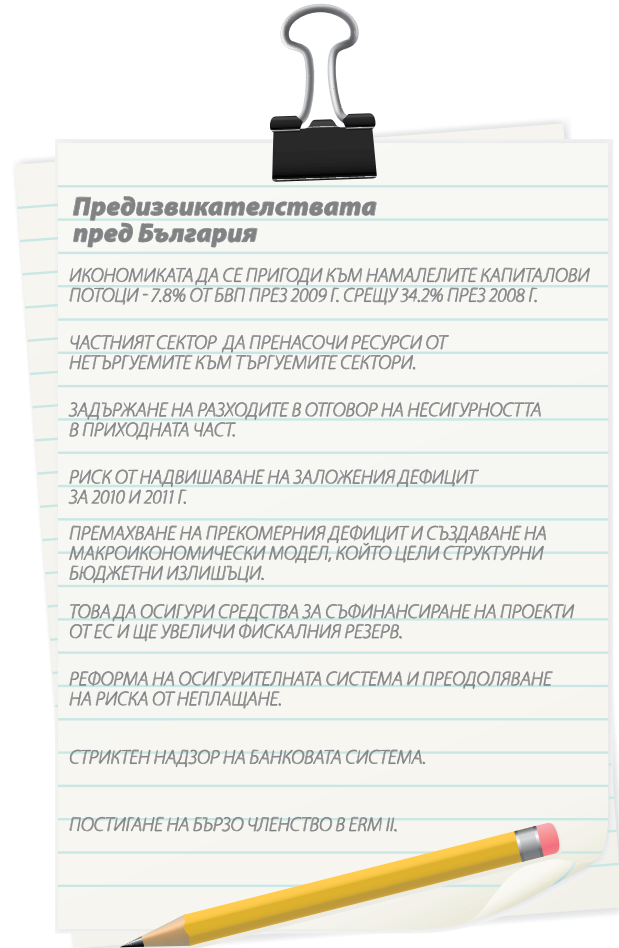 Предизвикателствата
пред България
ИКОНОМИКАТА ДА СЕ ПРИГОДИ КЪМ НАМАЛЕЛИТЕ КАПИТАЛОВИ
ПОТОЦИ - 7.8% ОТ БВП ПРЕЗ 2009 Г. СРЕЩУ 34.2% ПРЕЗ 2008 Г.
ЧАСТНИЯТ СЕКТОР ДА ПРЕНАСОЧИ РЕСУРСИ ОТ
НЕТЪРГУЕМИТЕ КЪМ ТЪРГУЕМИТЕ СЕКТОРИ.
ЗАДЪРЖАНЕ НА РАЗХОДИТЕ В ОТГОВОР НА НЕСИГУРНОСТТА
В ПРИХОДНАТА ЧАСТ.
РИСК ОТ НАДВИШАВАНЕ НА ЗАЛОЖЕНИЯ ДЕФИЦИТ
ЗА 2010 И 2011 Г.
ПРЕМАХВАНЕ НА ПРЕКОМЕРНИЯ ДЕФИЦИТ И СЪЗДАВАНЕ НА
МАКРОИКОНОМИЧЕСКИ МОДЕЛ, КОЙТО ЦЕЛИ СТРУКТУРНИ
БЮДЖЕТНИ ИЗЛИШЪЦИ.
ТОВА ДА ОСИГУРИ СРЕДСТВА ЗА СЪФИНАНСИРАНЕ НА ПРОЕКТИ
ОТ ЕС И ЩЕ УВЕЛИЧИ ФИСКАЛНИЯ РЕЗЕРВ.
РЕФОРМА НА ОСИГУРИТЕЛНАТА СИСТЕМА И ПРЕОДОЛЯВАНЕ
НА РИСКА ОТ НЕПЛАЩАНЕ.
СТРИКТЕН НАДЗОР НА БАНКОВАТА СИСТЕМА.
ПОСТИГАНЕ НА БЪРЗО ЧЛЕНСТВО В ERM II.